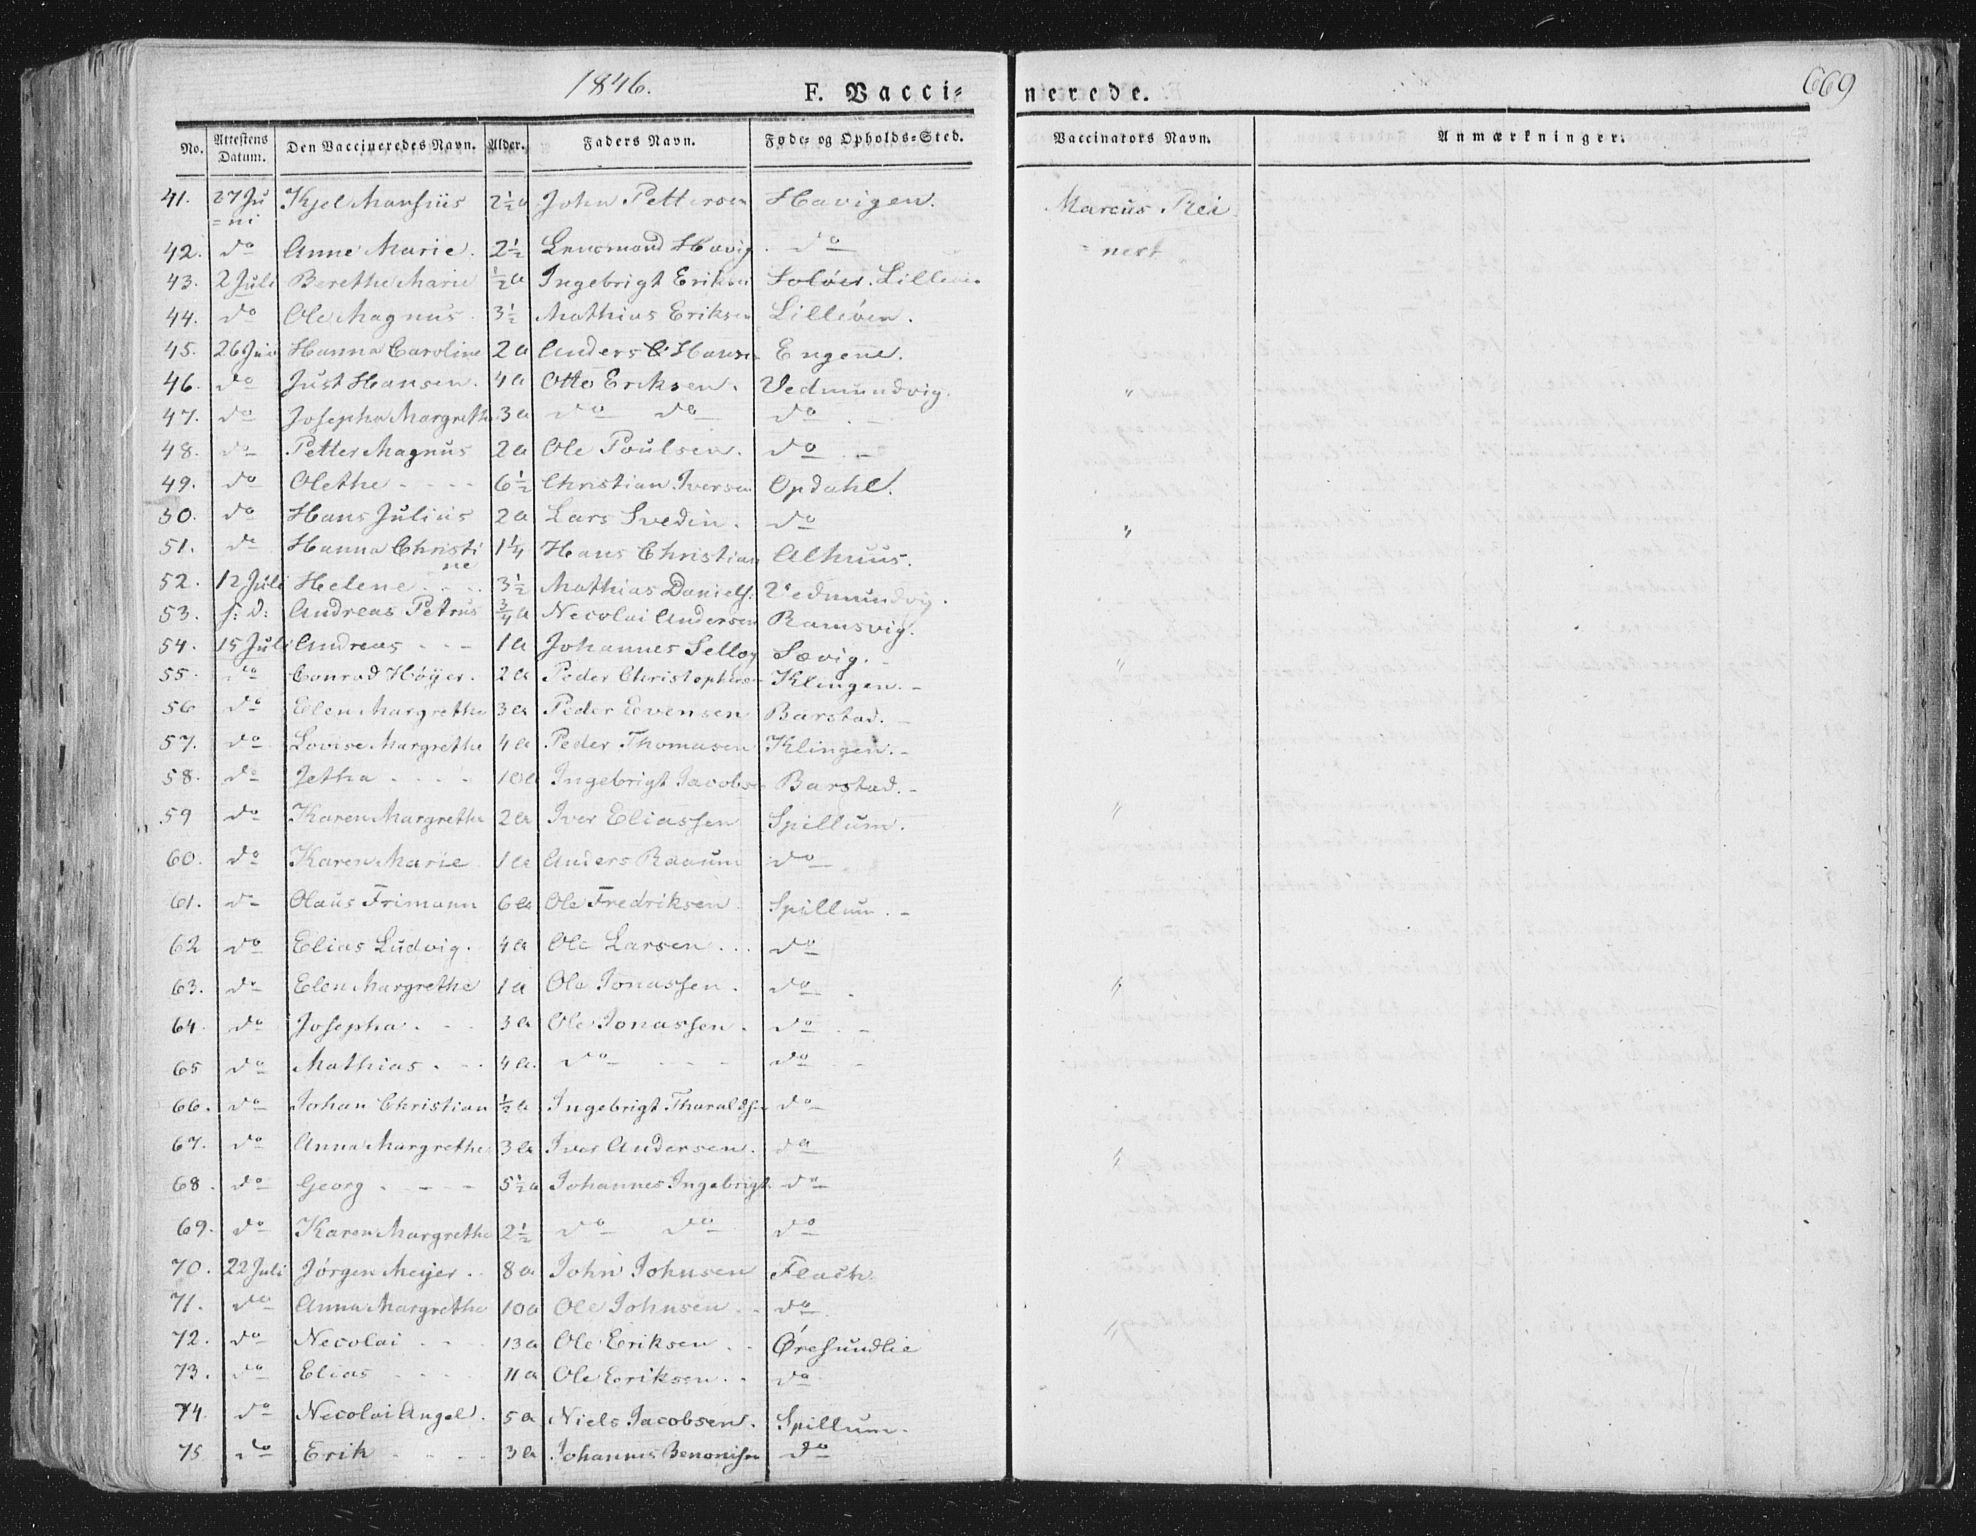 1846.
F. Vacci=
nerede.
669
No. Attestens Datum. Den Vaccineredes Navn. Alder. Faders Navn. Føde- og Opholds-Sted. Vaccinators Navn. Anmærkninger.
41. 27 Ju Kjel Mansius 2½ a John Pettersen Havigen. Marcus Trei
=ni
42. do Anne Marie. 2½ Lensmand Havig do = nest
43. 2 Juli Berethe Marie ½ a Ingebrigt Eriksen Lilleøen
44. do Ole Magnus 3½ Mathias Eriksen Lilleöen.
45. 26 Juni Hanna Caroline 2 a Anders C Hansen Engene.
46. do Just Hansen. 4 a Otto Eriksen. Vedmundvig.
47. do Josepha Margrethe 3 a do do do
48. do Petter Magnus 2 a Ole Poulsen. do
49. do Olethe 6½ Christian Iversen Opdahl.
30. do Hans Julius 2 a Lars Svedin. do "
51. do Hanna Christi 1¼ Hans Christian Alhuus.
ne
52. 12 Juli Helene 3½ Mathias Daniels: Vedmundvig.
53. s: d: Andreas Petrus ¾ a Necolai Andersen Ramsvig.
54. 15 Juli Andreas 1 a Johannes Selløy Sævig.
55. do Conrad Höyer. 2 a Peder Christophersen Klingen. "
56 do Elen Margrethe 3 a Peder Evensen Barstad.
57. do Lovise Margrethe 4 a Peder Thomasen Klingen.
58. do Jetha 10 a Ingebrigt Jacobsen Barstad.
59 do Karen Margrethe 2 a Iver Eliassen Spillum. "
60. do Karen Marie 1 a Anders Raaum do
61. do Olaus Frimann 6 a Ole Fredriksen Spillum.
62 do Elias Ludvig. 4 a Ole Larsen do
63. do Elen Margrethe 1 a Ole Jonassen. do "
64. do Josepha. 3 a Ole Jonassen. do
65 do Mathias. 4 a. do do
66. do Johan Christian ½ a Ingebrigt Tharaldsen do
67. do Anna Margrethe 3 a Iver Andersen. do "
68. do Georg 5½ a Johannes Ingebrigt. do
69. do Karen Margrethe 2½ do do do
70. 22 Juli Jörgen Meyer. 8 a John Johnsen Flach
71. do Anna Margrethe 10 a Ole Johnsen do
72. do Necolai 13 a Ole Eriksen Øresundlie "
73. do Elias 11 a Ole Eriksen. do
74. do Necolai Angel. 5 a Niels Jacobsen. Spillum.
75 do Erik 3 a Johannes Benonisen do